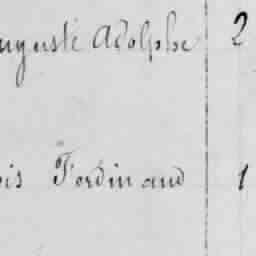 uguste Adolphe 2
is Ferdinand 1